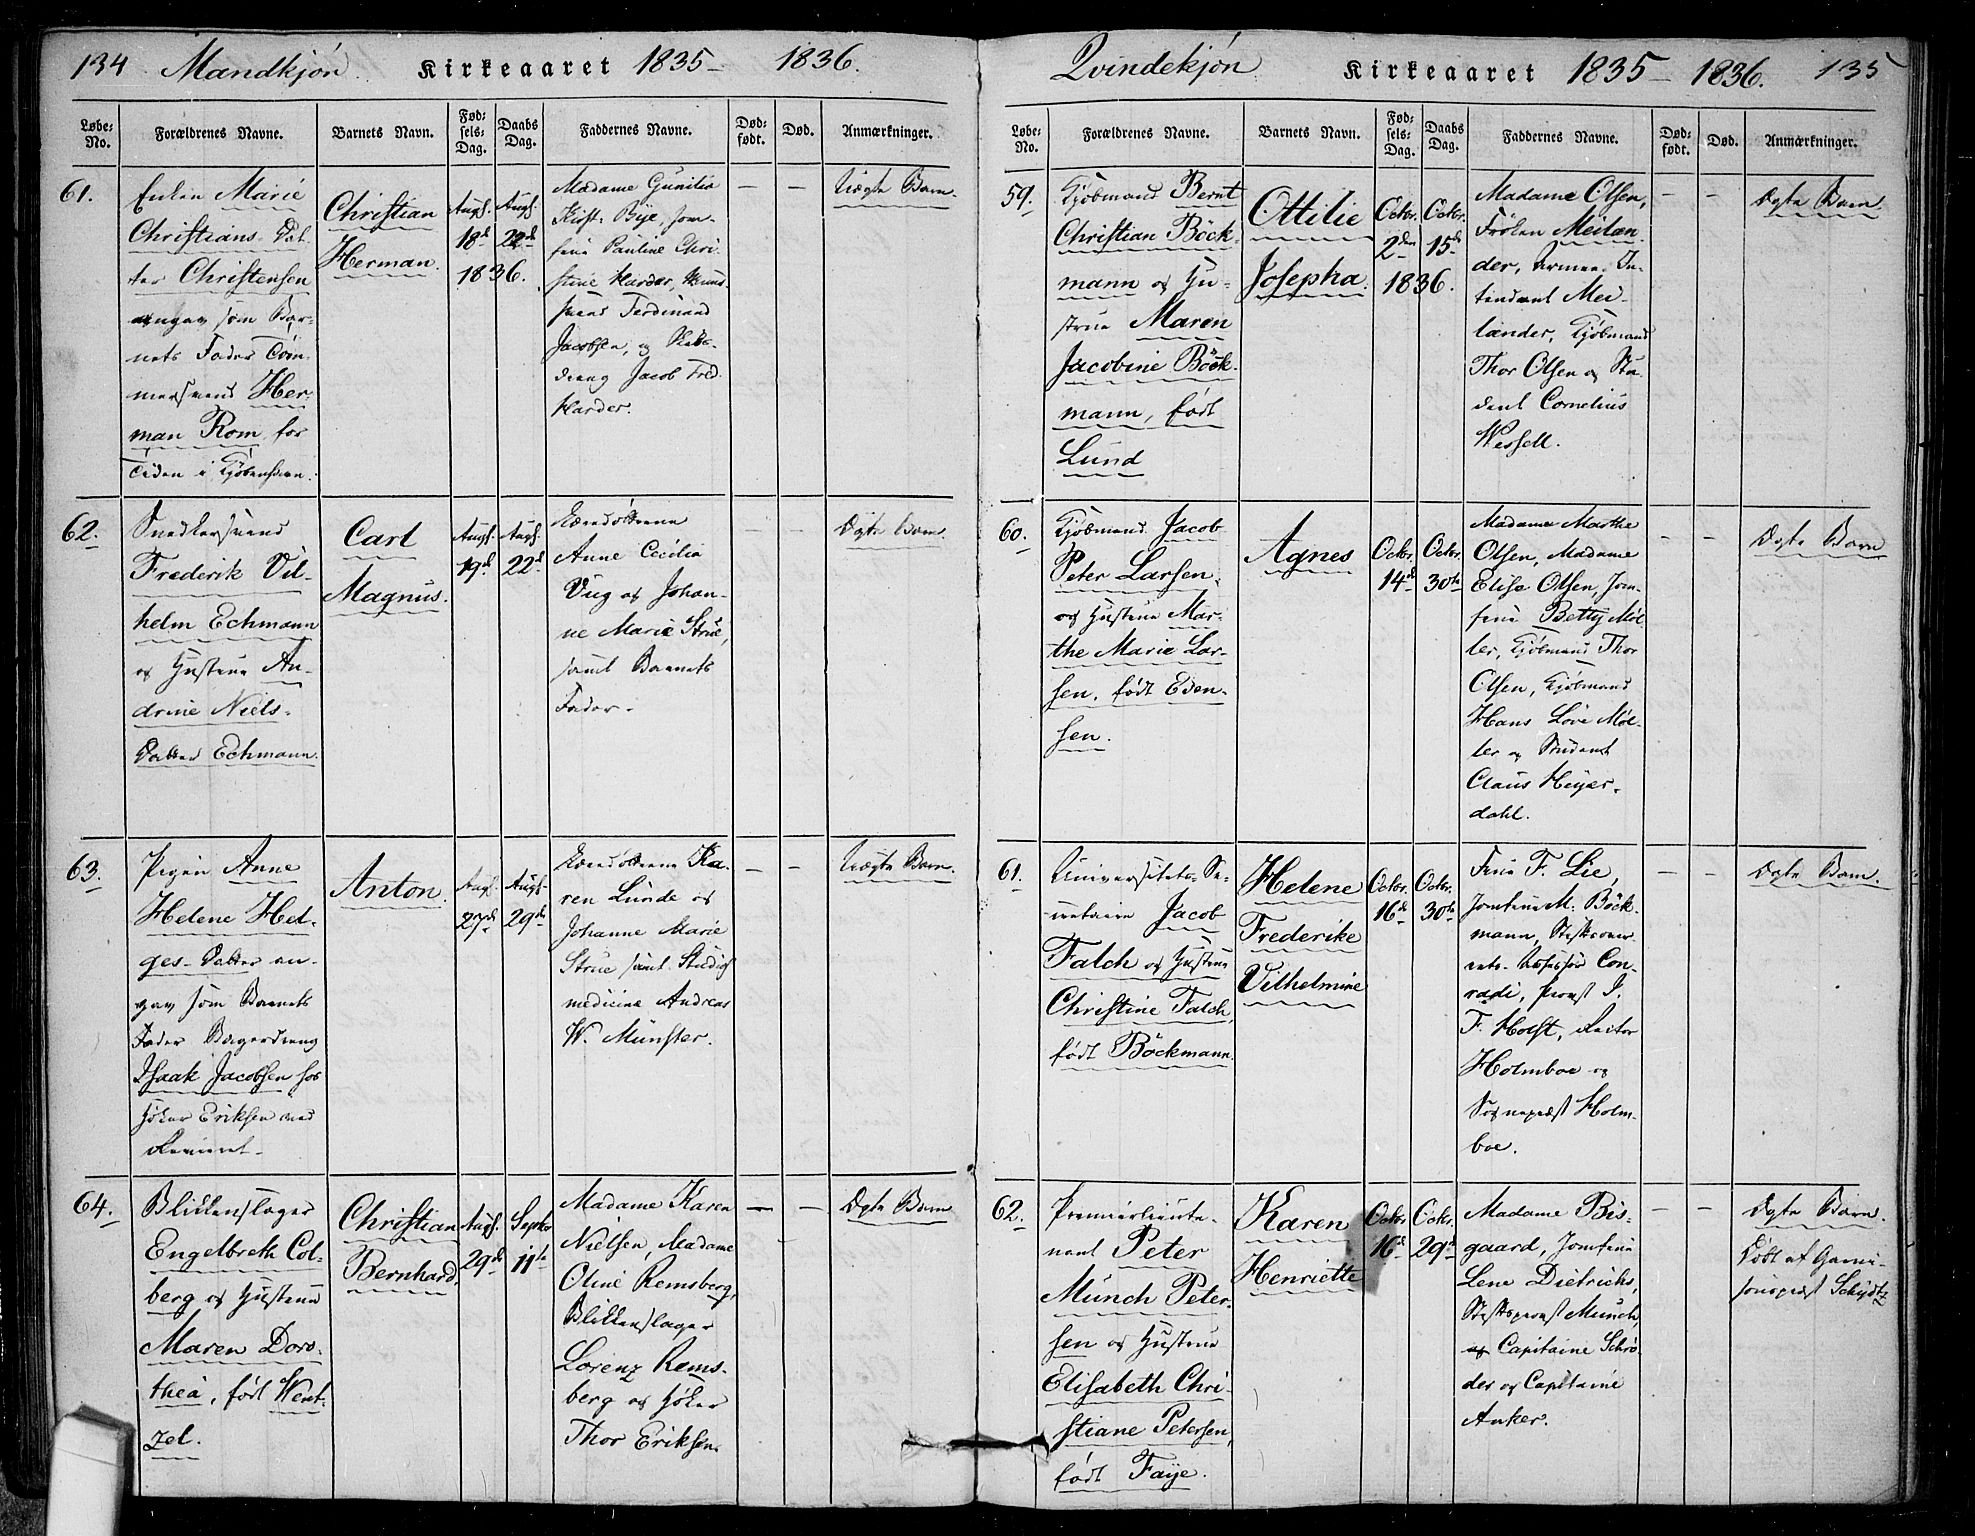 134 Mandkjøn. Kirkeaaret 1835- 1836.
Løbe-No.
Forældrenes Navne.
Barnets Navn.
Fødsels-Dag.
Daabs Dag.
Faddernes Navne.
Dødfødt.
Død.
Anmærkninger.
61.
Enken Marie
Christians Dat-
ter Christensen
angav som Bar-
nets Fader Com-
mersraad Her-
man Rom, for
Tiden i Kjøbenhavn.
Christian
Herman.
Augs.
18d
1836.
Augs.
22d
Madame Gunilia
Kirst. Bye, Jom-
frue Pauline Chri-
stine Harder,
Ferdinand
Jacobsen, og
dreng Jacob Fred.
Harder.
—
—
Uægte Barn.
62.
Snedkersvend
Frederik Vil-
helm Echmann
og Hustrue An-
drine Niels-
Datter Echmann.
Carl
Magnus.
Augs.
19d
Augs.
22d
Anne Cecilia
Vug og Johan-
ne Marie Strue,
samt Barnets
Fader.
—
—
Ægte Barn.
63.
Pigen Anne
Helene Hel-
ges-Datter an-
gav som Barnets
Fader Bagerdreng
Isaak Jacobsen hos
Høker Eriksen ved
Anton.
Augs.
27d
Augs.
29d
Ka-
ren Lunde og
Johanne Marie
Strue samt Studios
medicine Andreas
W. Münster.
—
—
Uægte Barn.
64.
Blikkenslager
Engelbreth Col-
berg og Hustrue
Maren Doro-
thea, født Went-
zel.
Christian
Bernhard.
Augs.
29d
Septbr
11te
Madame Karen
Nielsen, Madame
Oline Remsberg,
Blikkenslager
Lorenz Rems-
berg og Høker
Thor Eriksen.
—
—
Ægte Barn.
Qvindekjøn. Kirkeaaret 1835- 1836. 135
Løbe-No.
Forældrenes Navne.
Barnets Navn.
Fødsels-Dag.
Daabs Dag.
Faddernes Navne.
Dødfødt.
Død.
Anmærkninger.
59.
Kjøbmand Bernt
Christian Böck-
mann og Hu-
strue Maren
Jacobine Böck-
mann, født
Lund
Ottilie
Josepha.
Octbr.
2den
1836.
Octbr.
15de
Madame Olsen,
Frøken Meilæn-
der, Armee-In-
tendant Mei-
länder, Kjøbmand
Thor Olsen og Stu-
dent Cornelius
Wessell.
—
—
Ægte Barn
60.
Kjøbmand Jacob
Peter Larsen,
og Hustrue Mar-
the Marie Lar-
sen, født Even-
sen.
Agnes
Octbr.
14de
Octbr.
30te
Madame Marthe
Olsen, Madame
Elise Olsen, Jom-
frue Betty Møl-
ler, Kjøbmand Thor
Olsen, Kjøbmand
Hans Löve Møl-
ler og Student
Claus Heyer-
dahl.
—
—
Ægte Barn
61.
Universitets-Se-
cretaire Jacob
Falch og Hustrue
Christine Falch,
født Böckmann.
Helene
Frederike
Vilhelmine
Octbr.
16de
Octbr.
30te
Frue F. Lie,
Jomfrue M. Böck-
mann,
Assessor Con-
radi, Provst J.
F. Holst, Rector
Holmboe og
Sognepræst Holm-
boe.
—
—
Ægte Barn.
62.
Premierlieute-
nant Peter
Münch Peter-
sen og Hustrue
Elisabeth Chri-
stiane Petersen,
født Faye.
Karen
Henriette
Octbr.
16de
Octbr.
29de
Madame Bis-
gaard, Jomfrue
Lene Dietrichs,
Stiftsprovst Münch,
og Capitaine Schrø-
der og Capitaine
Anker.
—
—
Ægte Barn.
Døbt af Garni-
sonspræst Schydtz